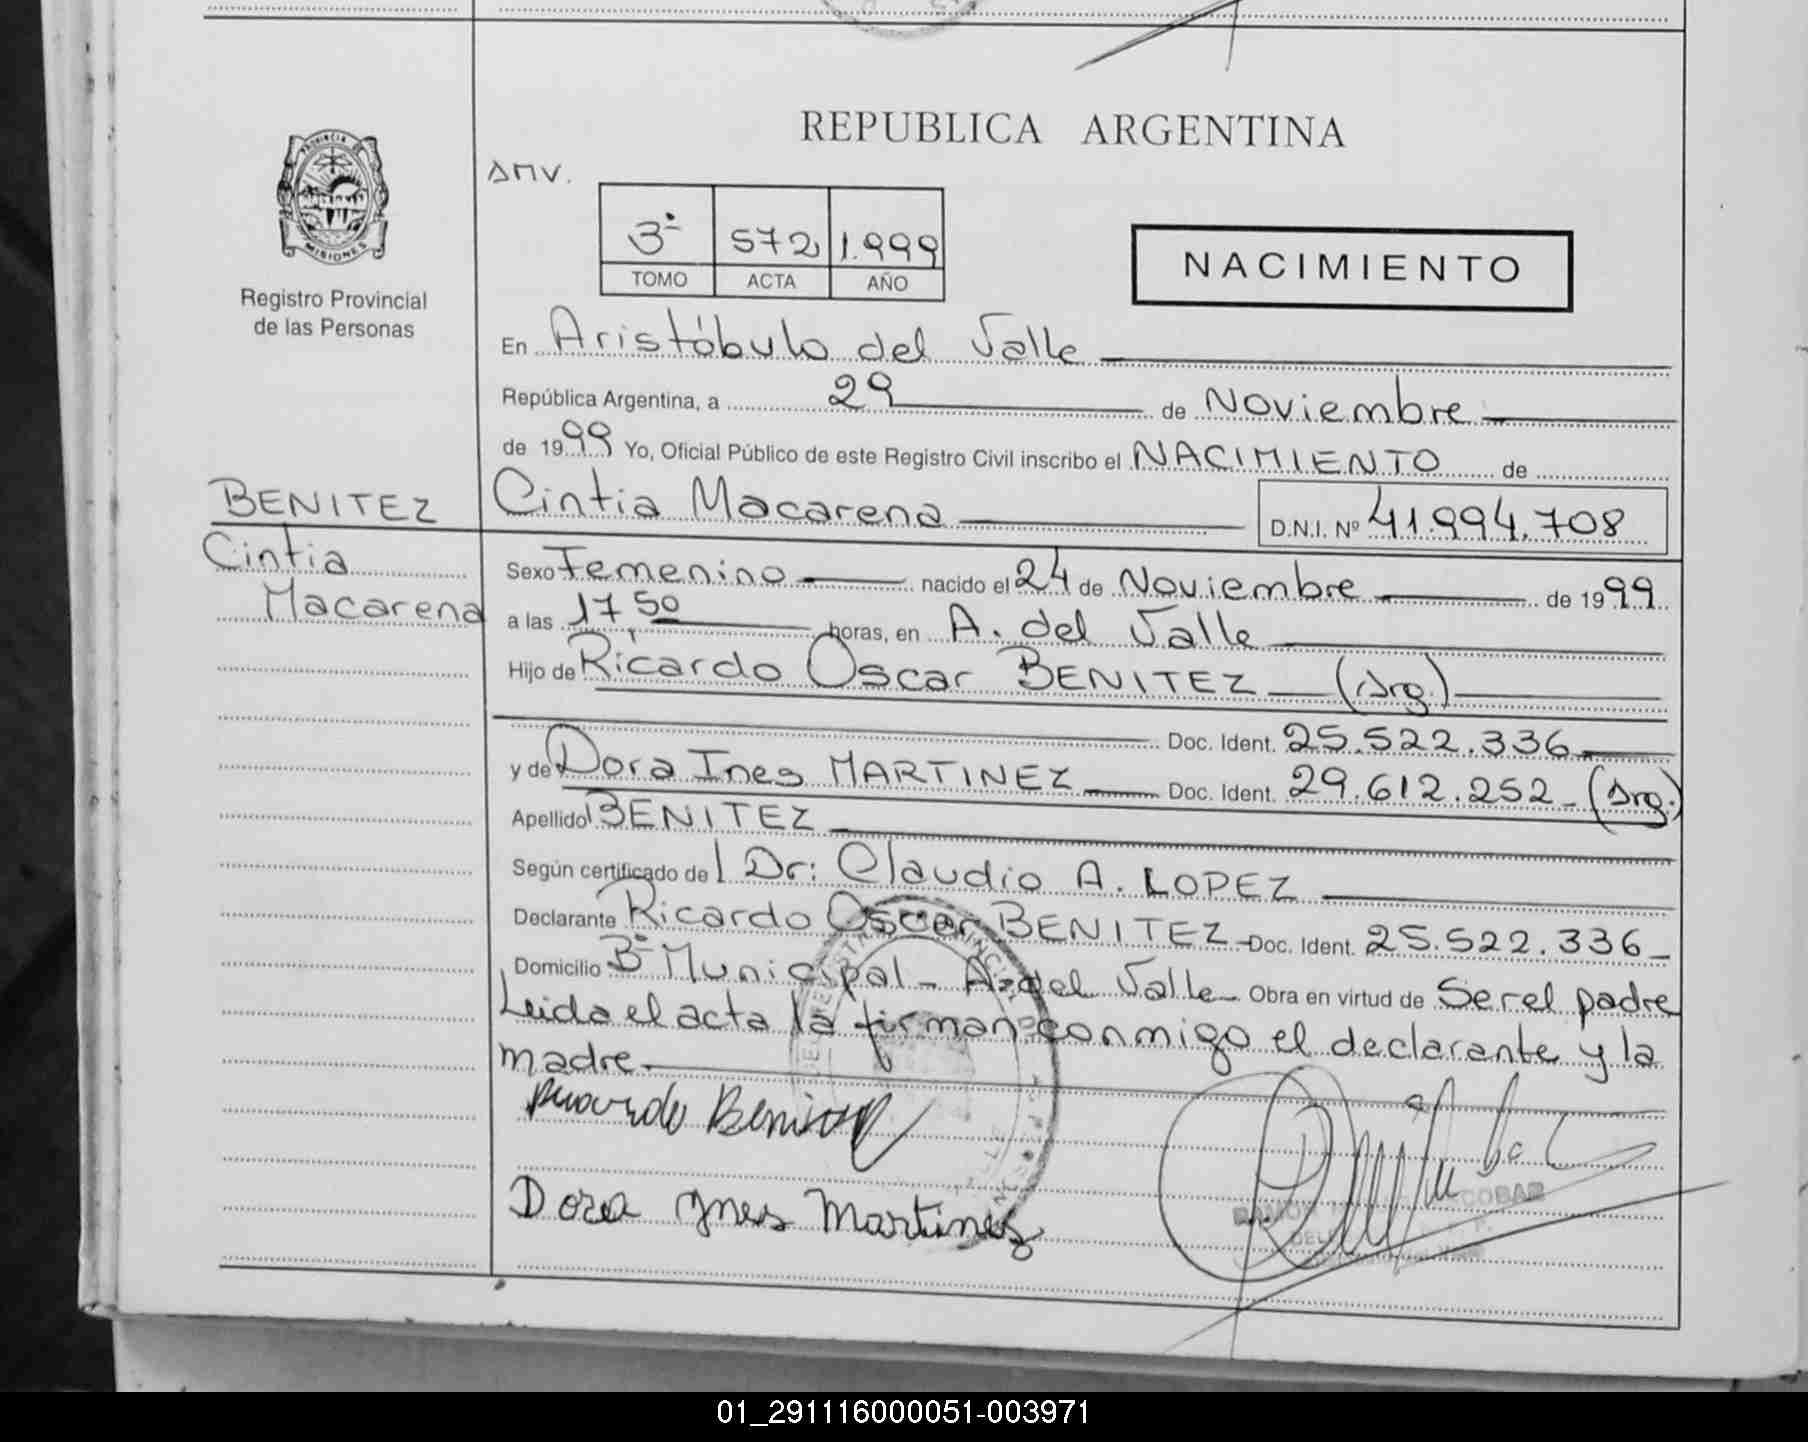 REPUBLICA ARGENTINA
AMV.
PROVINCIA DE
MISIONES
Registro Provincial
de las Personas
3º 572 1.999
TOMO ACTA AÑO
NACIMIENTO
En Aristóbulo del Valle
República Argentina, a 29 de Noviembre
de 1999 Yo, Oficial Público de este Registro Civil inscribo el NACIMIENTO de
BENITEZ
Cintia
Macarena
Cintia Macarena D.N.I. Nº 41.994.708
Sexo Femenino nacido el 24 de Noviembre de 1999
a las 17,50 horas, en A. del Valle
Hijo de Ricardo Oscar BENITEZ (Arg.)
Doc. Ident. 25.522.336
y de Dora Ines MARTINEZ Doc. Ident. 29.612.252 - (Arg.)
Apellido BENITEZ
Según certificado del Dr: Claudio A. LOPEZ
Declarante Ricardo Oscar BENITEZ Doc. Ident. 25.522.336
Domicilio Bº Municipal - A. del Valle Obra en virtud de Ser el padre
Leida el acta la firman conmigo el declarante y la
madre
Ricardo Benitez
Dora Ynes Martinez
RAMON ESCOBAR
01_291116000051-003971